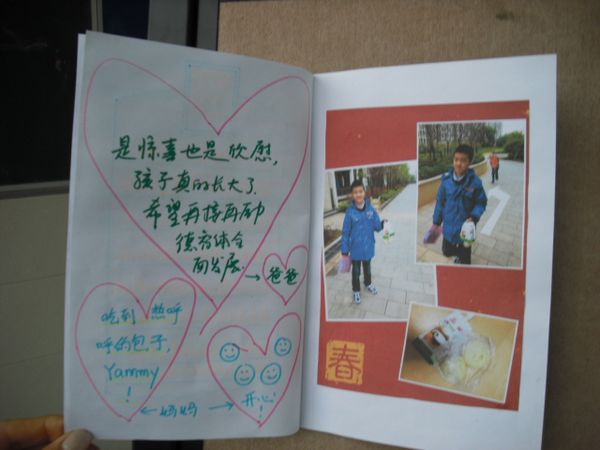 是惊喜也是欣慰,
孩子真的长大了.
希望再接再励
德育体全
面发展.
→爸爸
吃到热呼
呼的包子,
Yammy
!
←妈妈→
开心!
春